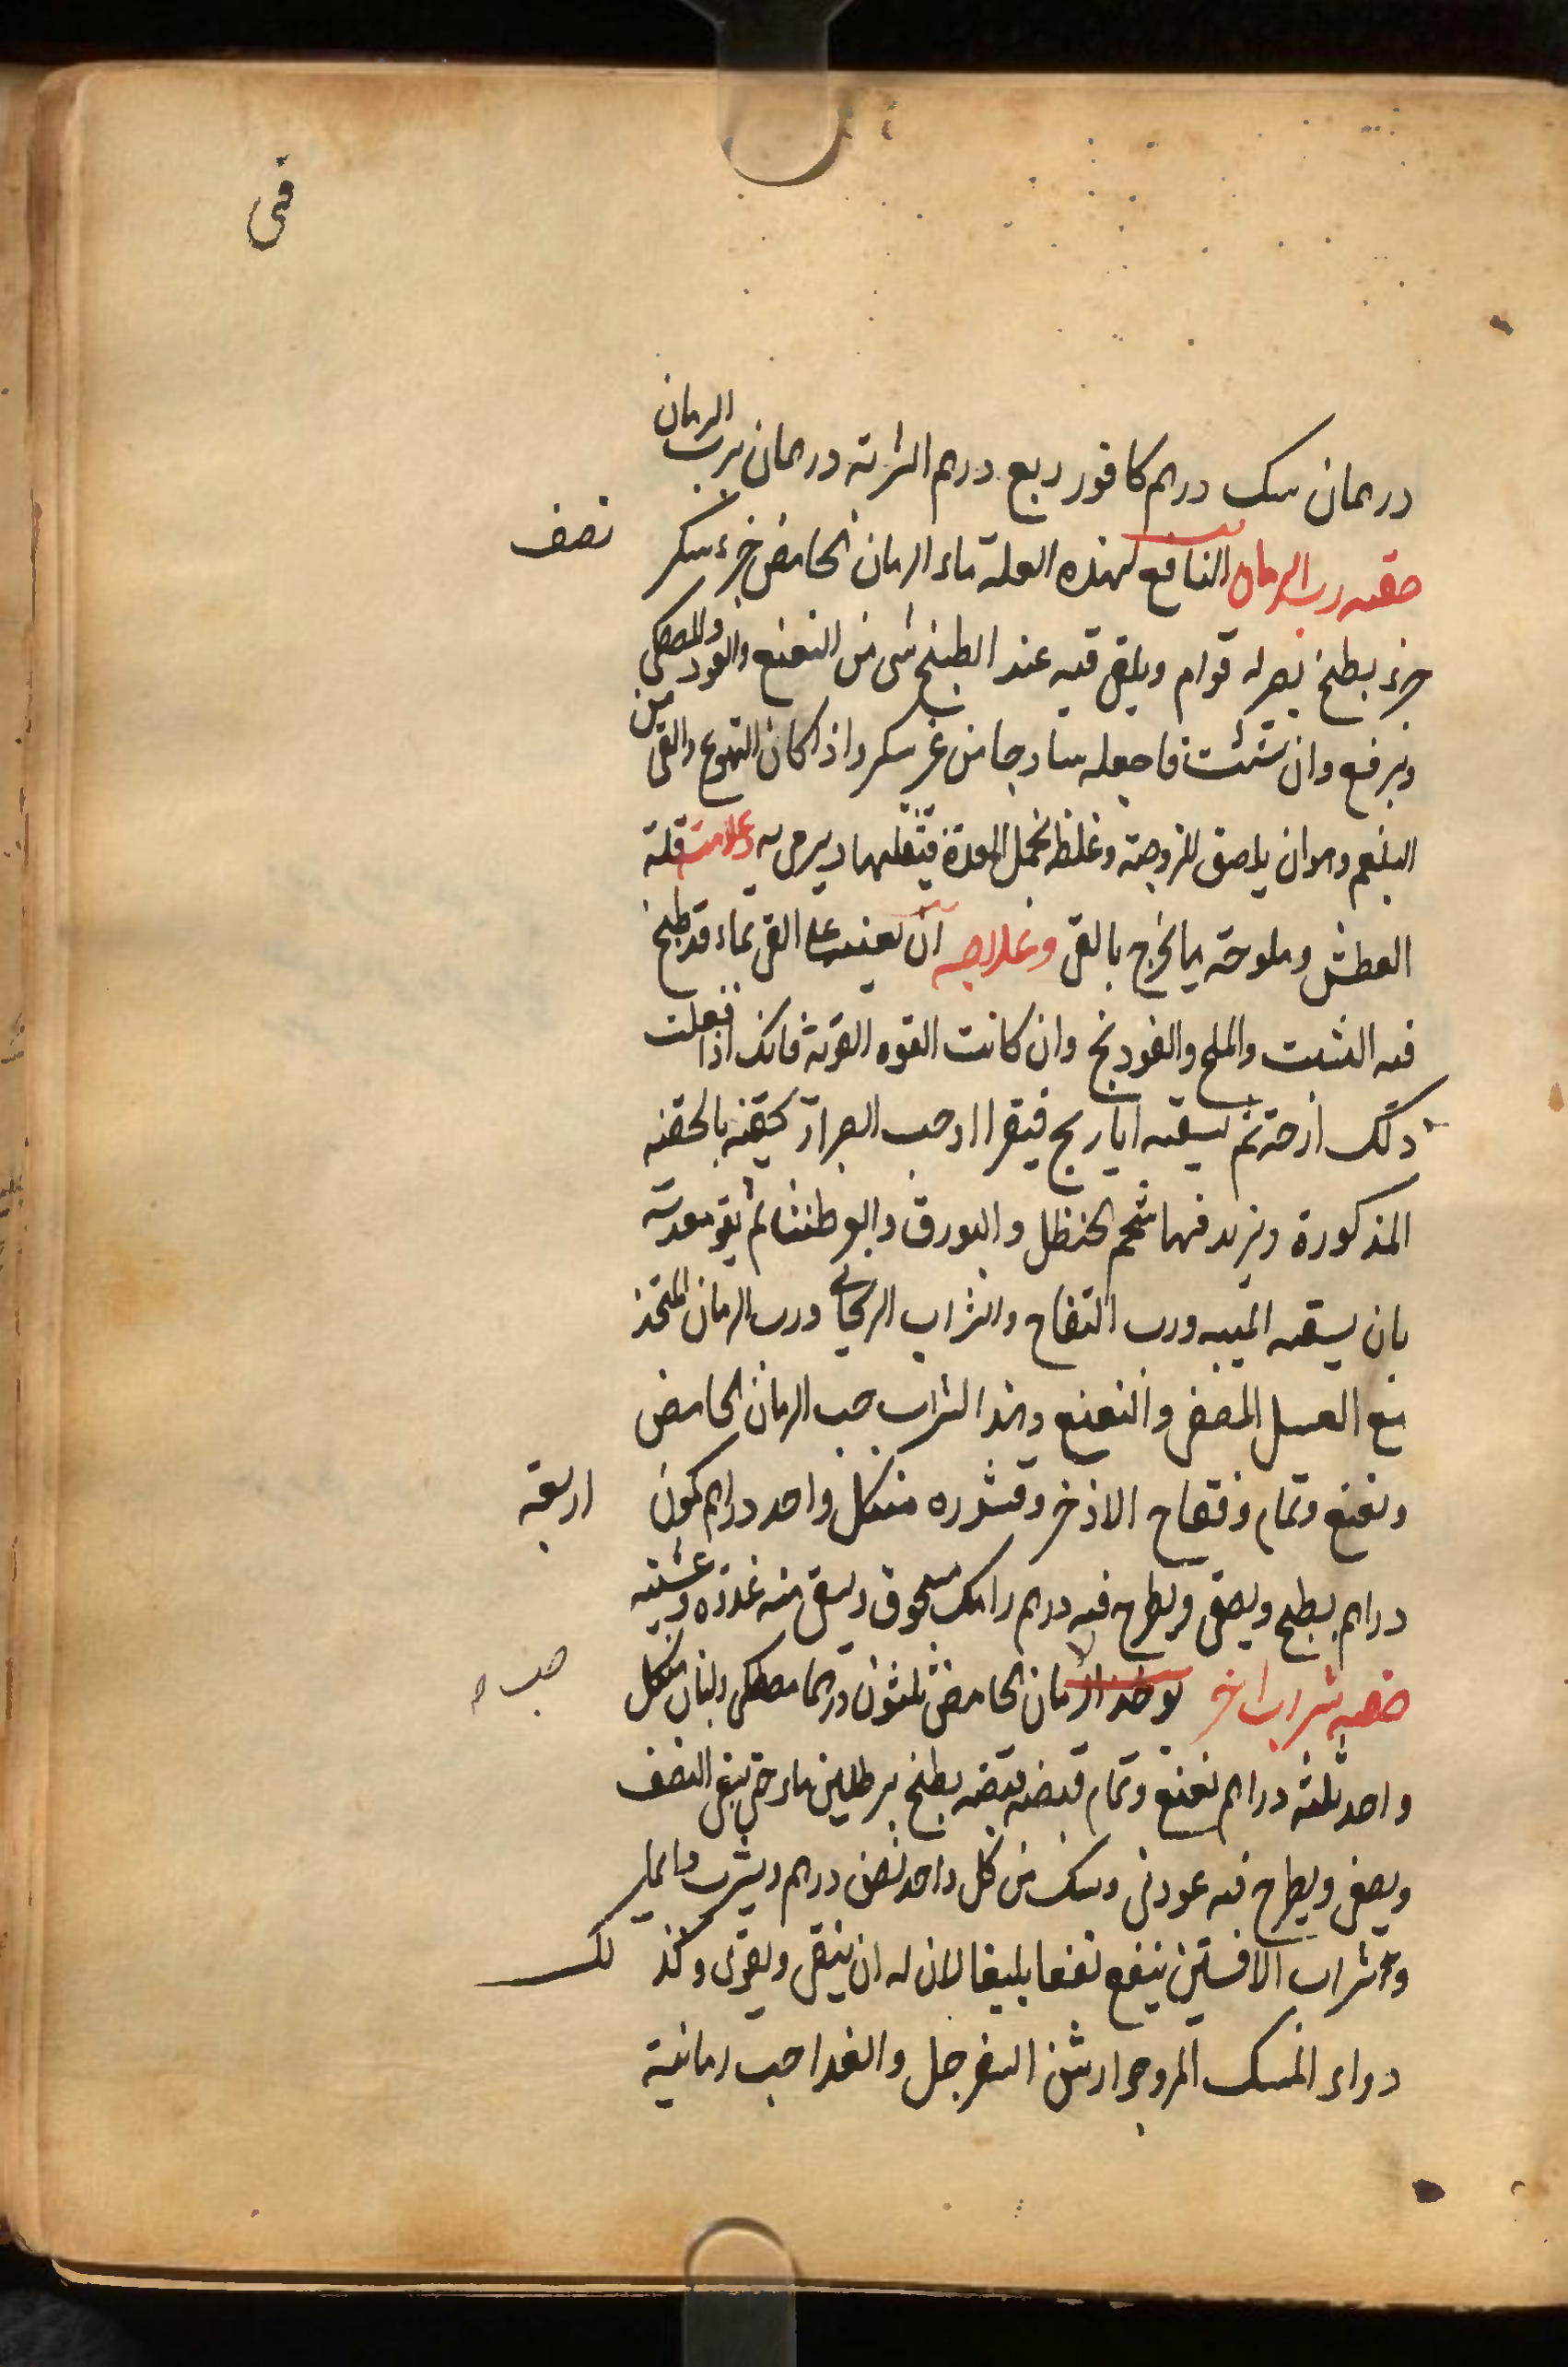 فى
درهمان سك درهم كافور ربع درهم الشربة درهمان برب الرمان
صفه رب الرمان النافع لهذه العلة ماء الرمان الحامض جزء سكر نصف
جزء يطبخ يصير له قوام ويلقى فيه عند الطبخ شى من النعنع والعود والمصطكى
ويرفع وان شئت فاجعله ساذجا من غير سكر واذا كان التهوع والقى من
البلغم وهو ان يلصق للزوجته وغلظه بخمل المعدة فيثقلها وعلامته قلة
العطش وملوحة ما يخرج بالقى وعلاجه ان تعينه على القى بماء قد طبخ
فيه الشبت والملح والفودنج وان كانت القوه القوية فانك اذا فعلت
ذلك ارحته ثم تسقيه ايارج فيقرا او حب الصبر او تحقنه بالحقنه
المذكورة ويزيد فيها شحم الحنظل والبورق ثم تقو معدته
بان يسقيه الميبه ورب التفاح والشراب الريحانى ورب الرمان المتخذ
مع العسل المصفى والنعنع وهذا الشراب حب الرمان الحامض
ونعنع ونمام وفقاح الاذخر وقشوره من كل واحد دراهم كمون اربعة
دراهم يطبخ ويصفى ويطرح فيه درهم رامك مسحوق ويسقى منه غدوة وعشية
صفه شراب اخر يوخذ الرمان الحامض ثلثون درهما مصطكى ولبان من كل حب
واحد ثلثة دراهم نعنع ونمام قبضه قبضه يطبخ برطلين ماء حتى يبقى النصف
ويصفى ويطرح فيه عود نى وسك من كل واحد نصف درهم ويشرب
وشراب الافسنتين ينفع نفعا بليغا لان له ان ينقى ويقوى وكذلك
دواء المسك المر وجوارشن السفرجل والغدا حب رمانية